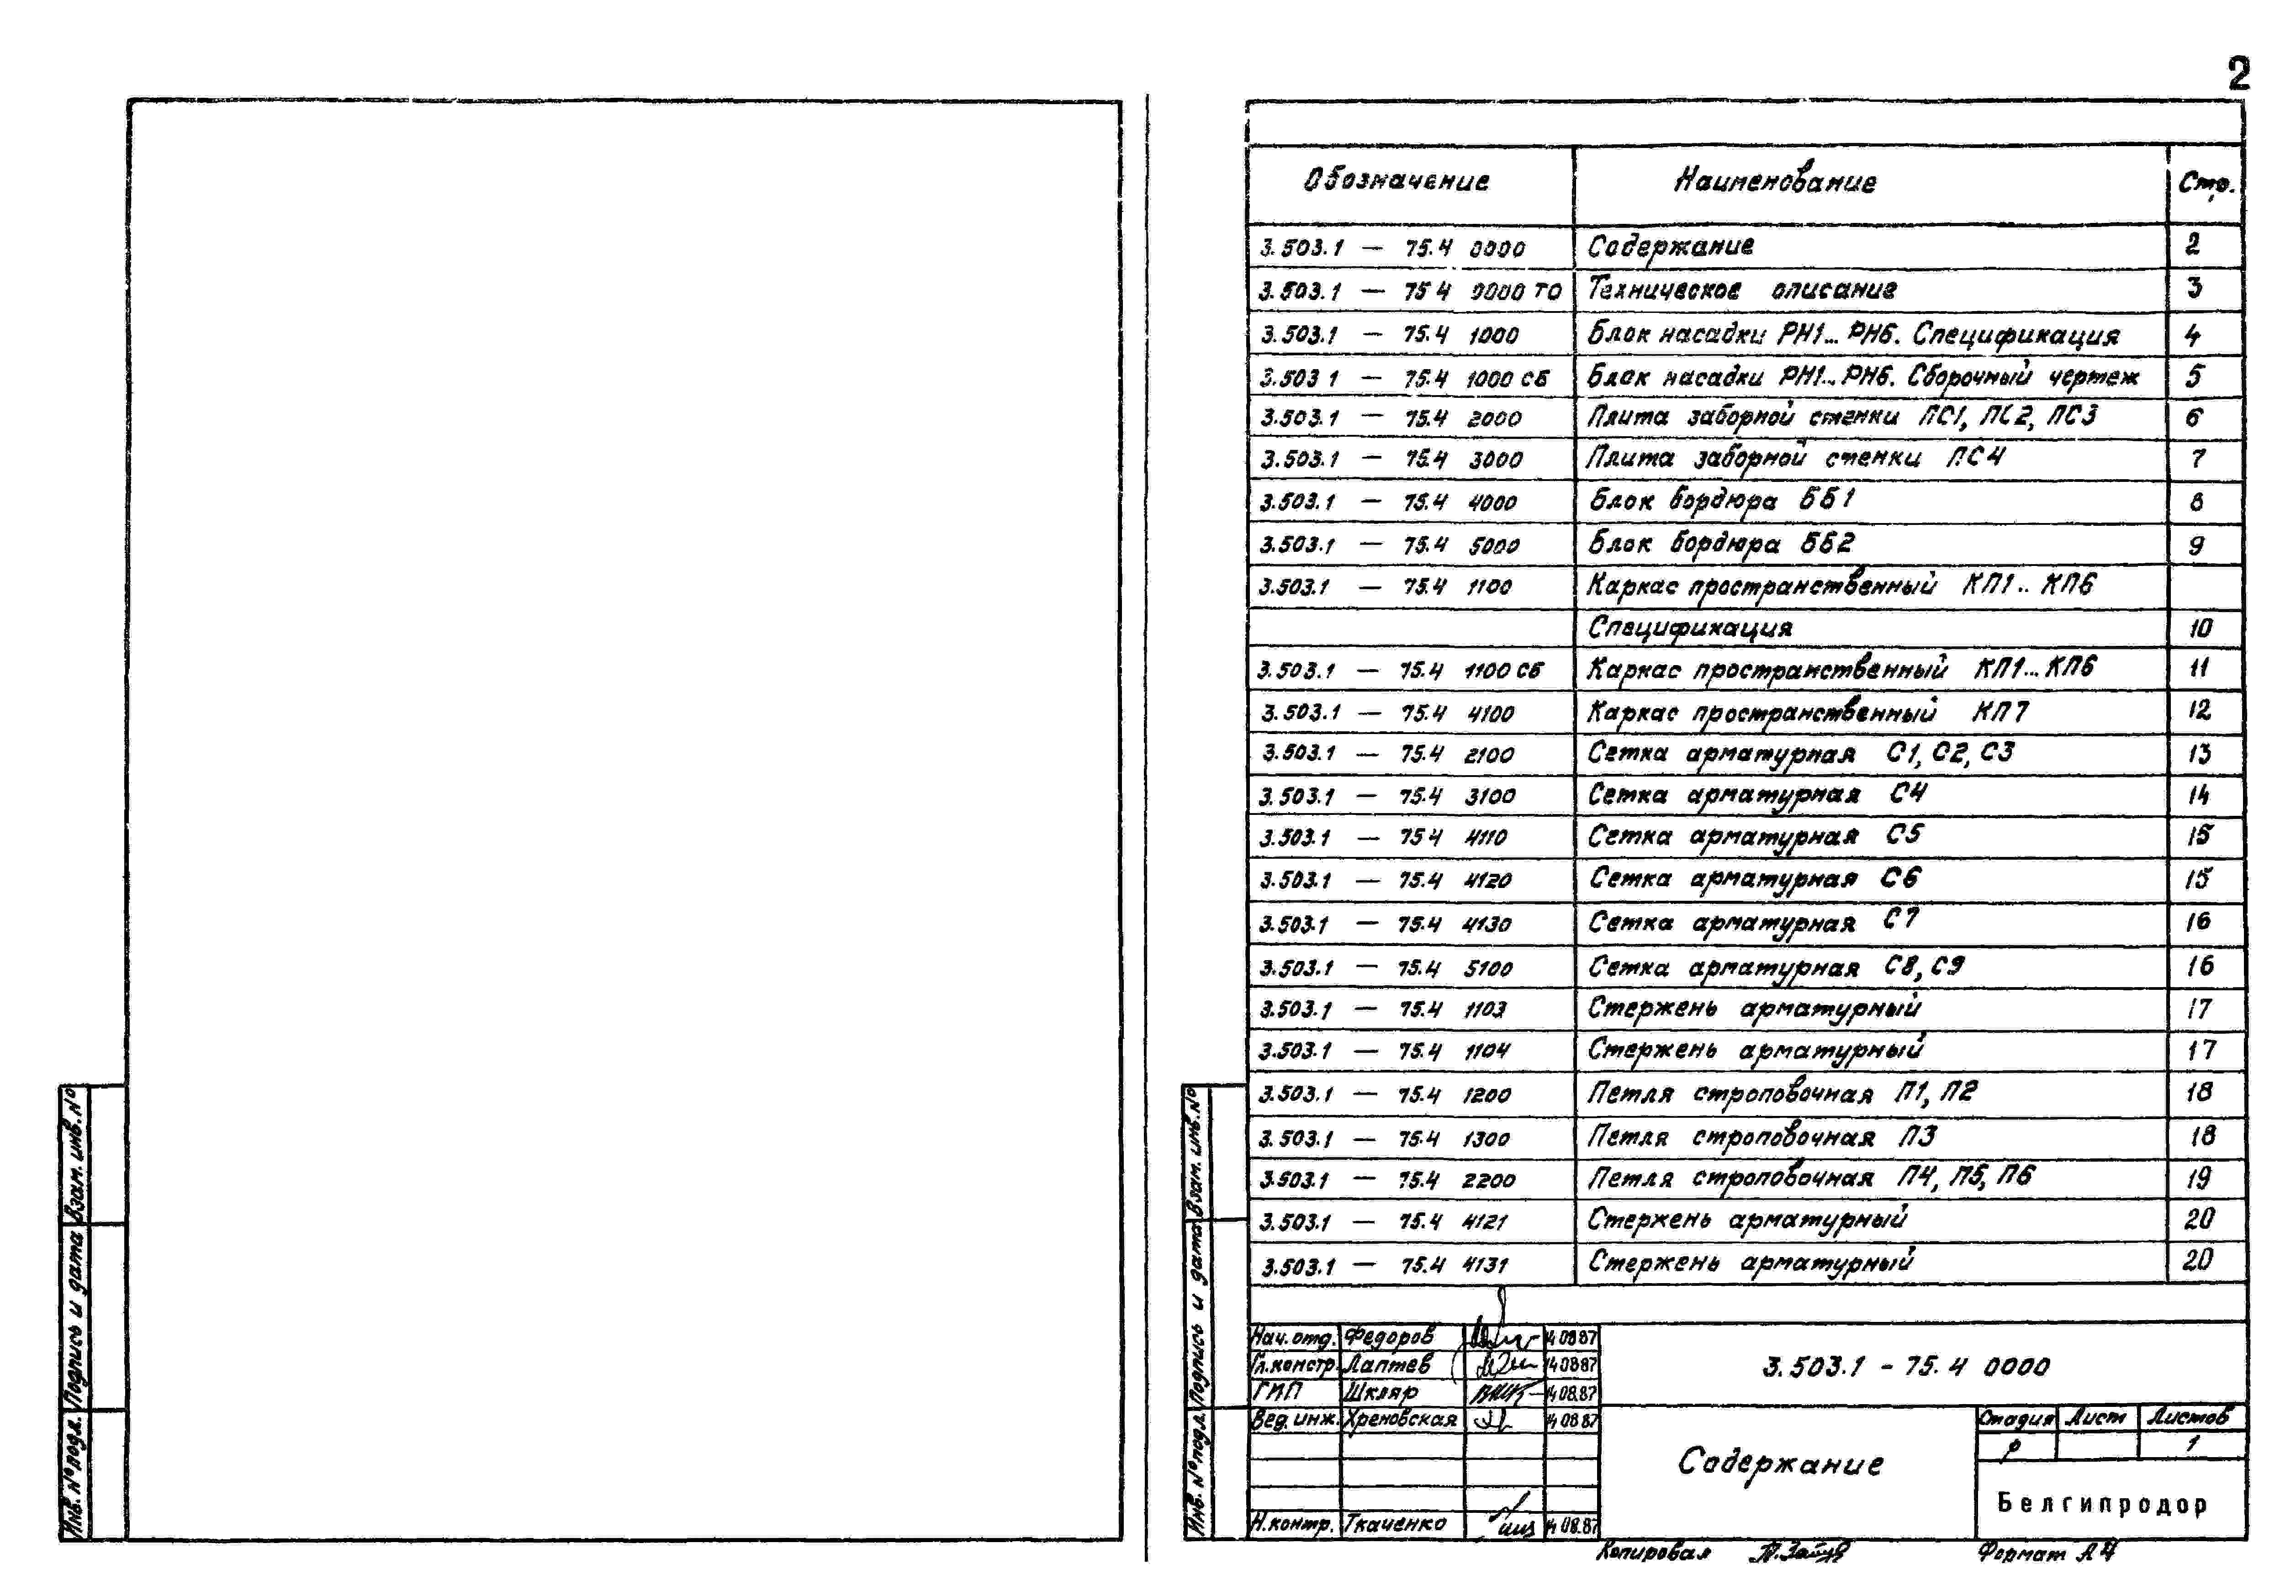 2
Обозначение Наименование Стр.
3.503.1 — 75.4 0000 Содержание 2
3.503.1 — 75 4 0000 ТО Техническое описание 3
3.503.1 — 75.4 1000 Блок насадки РН1... РН6. Спецификация 4
3.503 1 — 75.4 1000 СБ Блок насадки РН1... РН6. Сборочный чертеж 5
3.503.1 — 75.4 2000 Плита заборной стенки ПС1, ПС2, ПС3 6
3.503.1 — 75.4 3000 Плита заборной стенки ПС4 7
3.503.1 — 75.4 4000 Блок бордюра ББ1 8
3.503.1 — 75.4 5000 Блок бордюра ББ2 9
3.503.1 — 75.4 1100 Каркас пространственный КП1.. КП6
Спецификация 10
3.503.1 — 75.4 1100 СБ Каркас пространственный КП1... КП6 11
3.503.1 — 75.4 4100 Каркас пространственный КП7 12
3.503.1 — 75.4 2100 Сетка арматурная С1, С2, С3 13
3.503.1 — 75.4 3100 Сетка арматурная С4 14
3.503.1 — 75 4 4110 Сетка арматурная С5 15
3.503.1 — 75.4 4120 Сетка арматурная С6 15
3.503.1 — 75.4 4130 Сетка арматурная С7 16
3.503.1 — 75.4 5100 Сетка арматурная С8, С9 16
3.503.1 — 75.4 1103 Стержень арматурный 17
3.503.1 — 75.4 1104 Стержень арматурный 17
3.503.1 — 75.4 1200 Петля строповочная П1, П2 18
3.503.1 — 75.4 1300 Петля строповочная П3 18
3.503.1 — 75.4 2200 Петля строповочная П4, П5, П6 19
3.503.1 — 75.4 4121 Стержень арматурный 20
3.503.1 — 75.4 4131 Стержень арматурный 20
Нач. отд. Федоров 14 08 87
Гл. констр. Лаптев 14 08 87
ГИП Шкляр 14 08.87
Вед. инж. Хреновская 14 08 87
Н.контр. Ткаченко 14 08.87
3.503.1 - 75.4 0000
Содержание
Стадия Лист Листов
Р 1
Белгипродор
Копировал
Формат А4
Инв. № подл. Подпись и дата Взам. инв. №
Инв. № подл. Подпись и дата Взам. инв. №